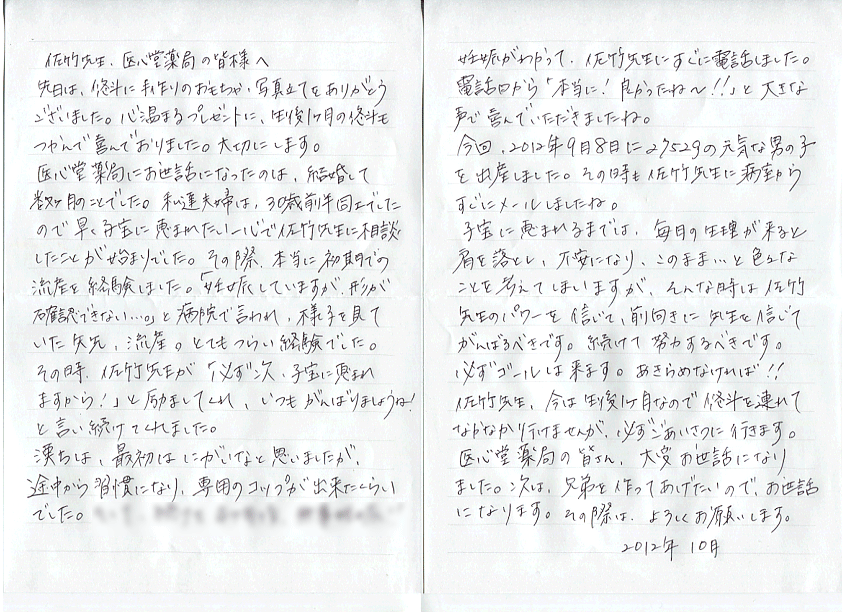 佐竹先生、医心堂薬局の皆様へ
先日は、修斗に手作りのおもちゃ、写真立てをありがとう
ございました。心温まるプレゼントに、生後1ヶ月の修斗も
つかんで喜んでおりました。大切にします。
医心堂薬局にお世話になったのは、結婚して
数ヶ月のことでした。私達夫婦は、30歳前半同士でした
ので早く子宝に恵まれたい一心で佐竹先生に相談
したことが始まりでした。その際、本当に初期での
流産を経験しました。「妊娠していますが、形が
確認できない…。」と病院で言われ、様子を見て
いた矢先、流産。とてもつらい経験でした。
その時、佐竹先生が「必ず次、子宝に恵まれ
ますから!」と励ましてくれ、いつもがんばりましょうね!
と言い続けてくれました。
漢方は、最初はにがいなと思いましたが、
途中から習慣になり、専用のコップが出来たくらい
でした。
妊娠がわかって、佐竹先生にすぐに電話しました。
電話口から「本当に!良かったね〜!!」と大きな
声で喜んでいただきましたね。
今回、2012年9月8日に2752gの元気な男の子
を出産しました。その時も佐竹先生に病室から
すぐにメールしましたね。
子宝に恵まれるまでは、毎月の生理が来ると
肩を落とし、不安になり、このまま…と色々な
ことを考えてしまいますが、そんな時は佐竹
先生のパワーを信じて、前向きに先生を信じて
がんばるべきです。続けて努力するべきです。
必ずゴールは来ます。あきらめなければ!!
佐竹先生、今は生後1ヶ月なので修斗を連れて
なかなか行けませんが、必ずごあいさつに行きます。
医心堂薬局の皆さん、大変お世話になり
ました。次は、兄弟を作ってあげたいので、お世話
になります。その際は、よろしくお願いします。
2012年 10月